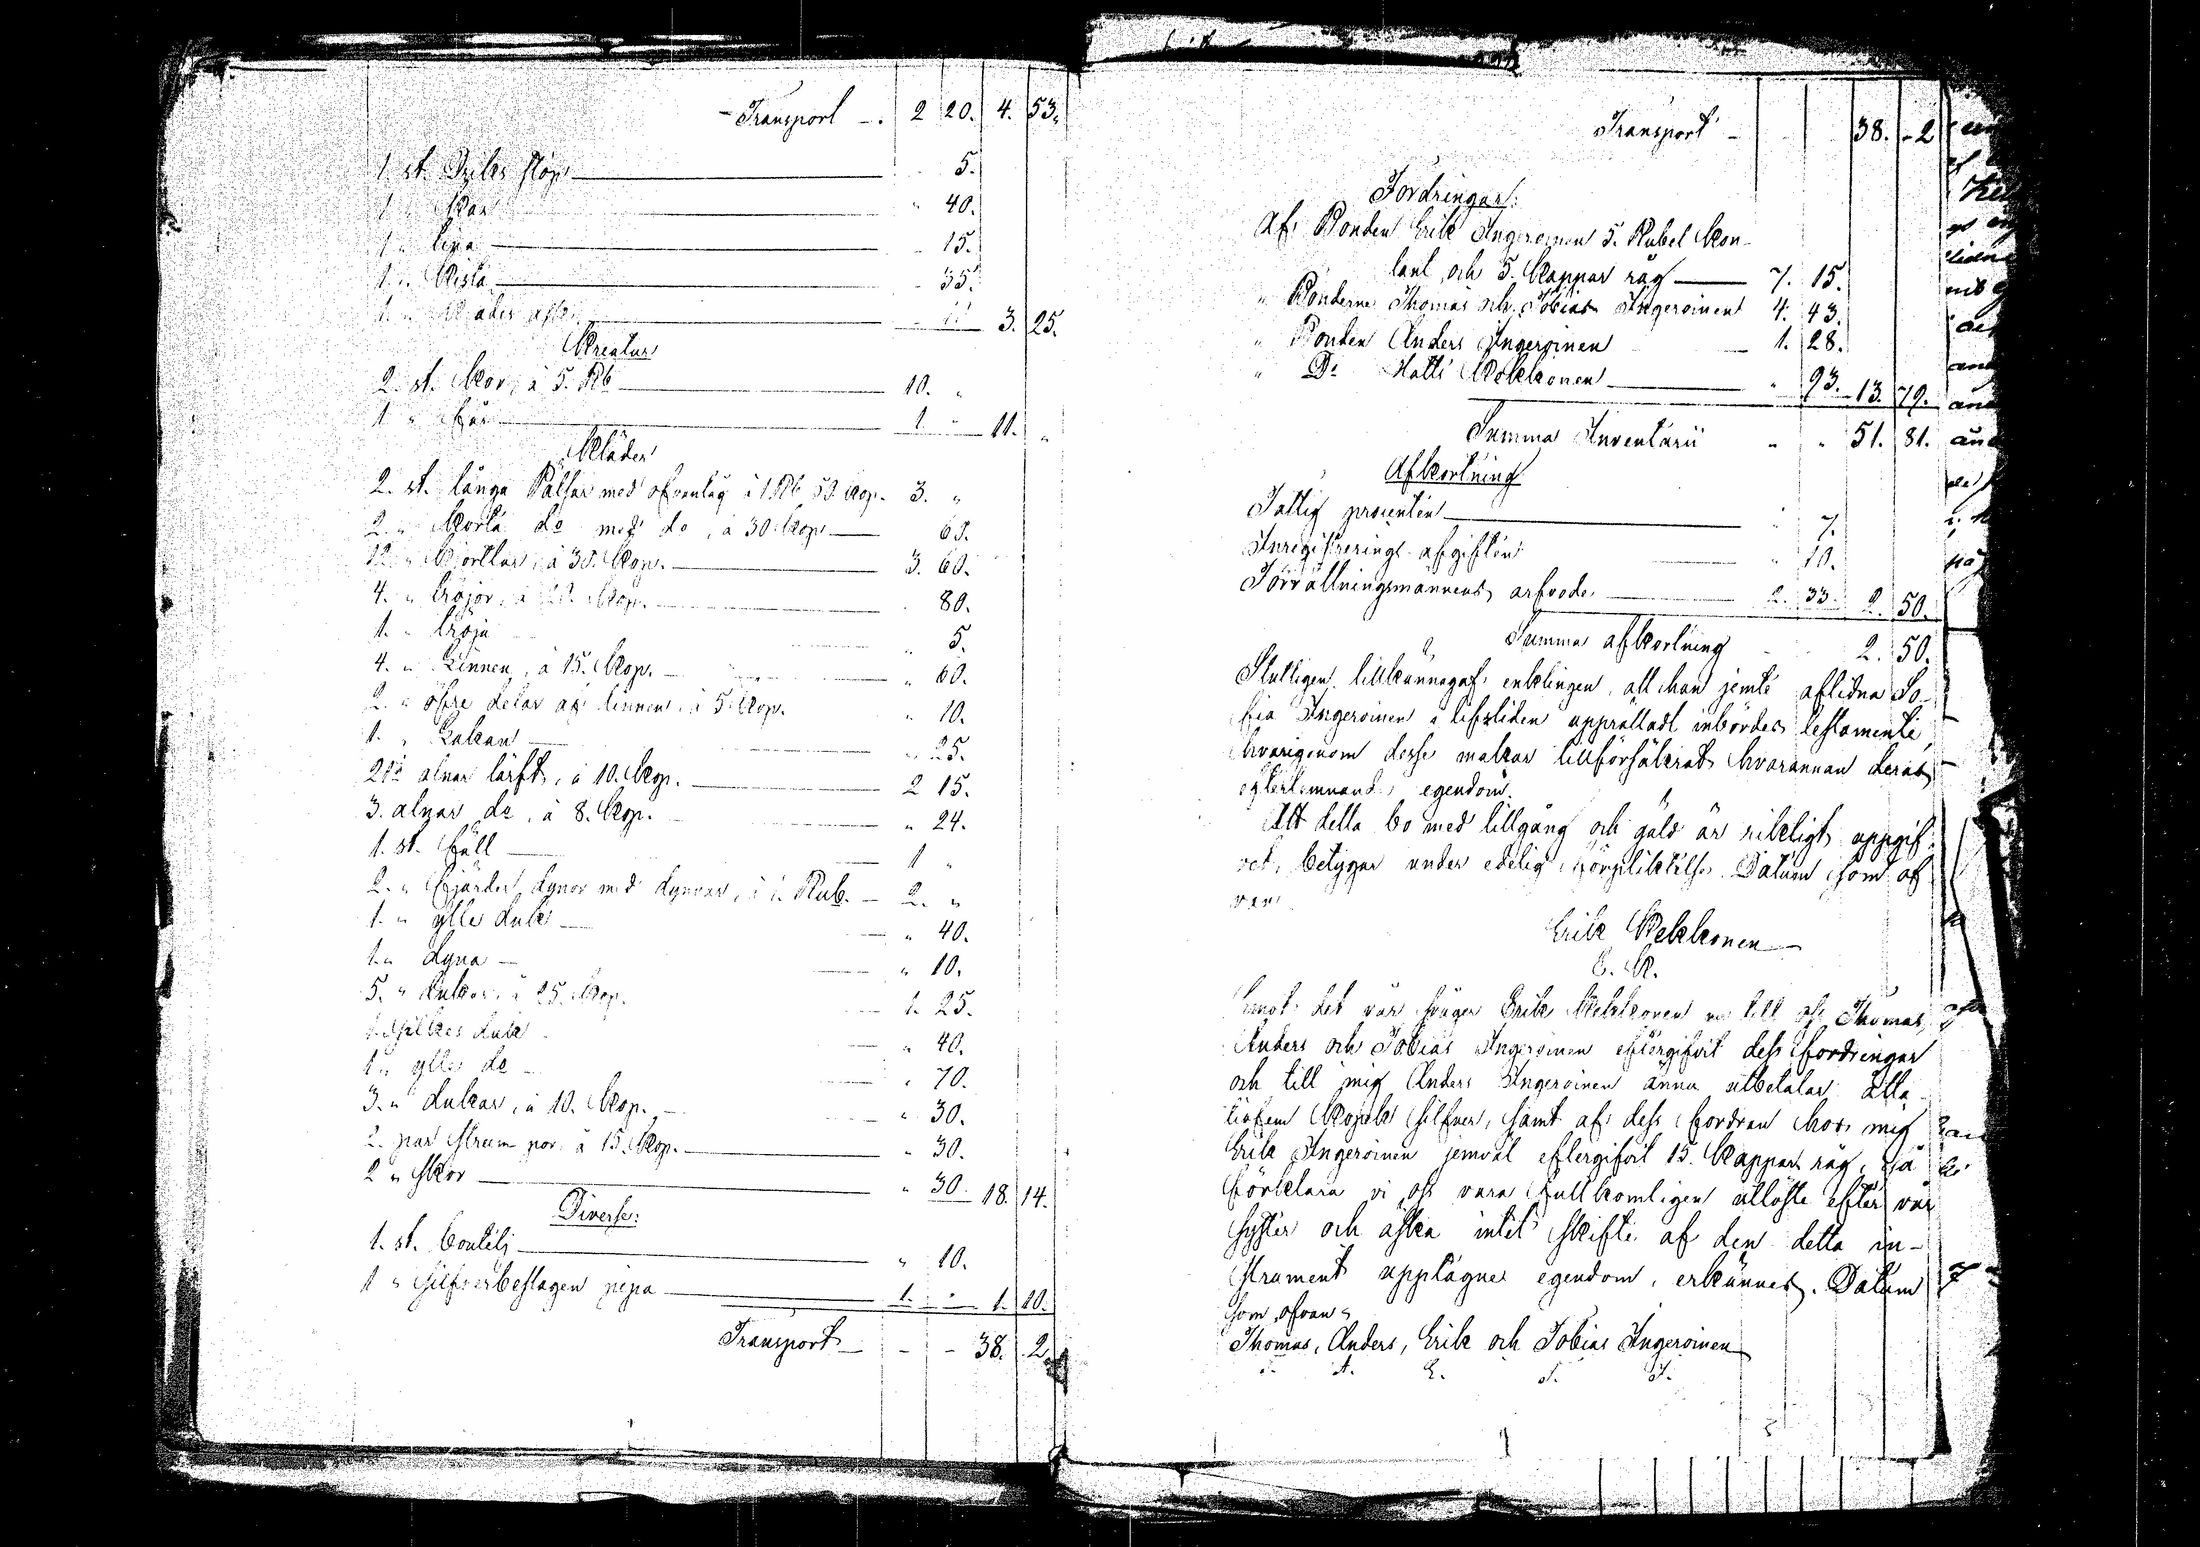 Transport - 2 20. 4. 53.
1 st. Stop 5.
1 " Skar " 40.
1 " Lipa " 15.
1 " Kista " 35.
1 " 3. 25.
Kreatur
2 st. Kor, à 5. Rb 10. "
1 " Får 1. " 11. "
Kläder
2. st. långa Pälsar med ofvanlag à 1 Rb 50 kop. 3. "
2 " Korta do med do, à 30 Kop 60.
12 " Skjortlar, à 30. Kop. 3. 60.
4. " tröjor, à 20. Kop. 80.
1. " tröja " 5.
4. " Linnen, à 15. Kop. " 60.
2. " öfre delar af linnen à 5 kop. " 10.
1. " Lakan " 25.
21½ alnar lärft, à 10. Kop. 2 15.
3. alnar do, à 8. Kop. " 24.
1. st. Fäll 1 "
2. " Fjäder dynor med dynvar, à 1. Rub. 2. "
1. " ylle duk " 40.
1. " dyna " 10.
5. " dukar, à 25. Kop. 1. 25.
1. silkes duk " 40.
1. " ylle do " 70.
3. " dukar, à 10. Kop. " 30.
2. par strumpor, à 15. Kop. " 30.
2 " Skor " 30. 18. 14.
Diverse:
1. st. boutelj " 10.
1 " Silfverbeslagen pipa 1. " 1. 10.
Transport - - 38. 2.
Transport - 38. - 2
Fordringar:
Af Bonden Erik Ingeroinen 5. Rubel Kon-
tant och 5. Kappar råg 7. 15.
" Bönderne Thomas och Tobias Ingeroinen 4. 43.
" Bonden Anders Ingeroinen 1. 28.
" Do Matts Kekkonen " 93. 13. 79.
Summa Inventarii " " 51. 81.
Afkortning
Fattig procenten " 7.
Inregistrerings afgiften " 10.
Förrättningsmannens arfvode 2. 33. 2. 50.
Summa afkortning 2. 50.
Slutligen tillkännagaf enklingen, att han jemte aflidna So-
fia Ingeroinen i lifstiden upprättadt inbördes testamente,
hvarigenom desse makar tillförsäkrat hvarannan deras
efterlemnande egendom.
Att detta bo med tillgång och gäld är riktigt uppgif-
vet, betygar under edelig förpliktelse. Datum som of
van
Erik Kekkonen
E. K.
Emot det vår svåger Erik Kekkonen nu till oss Thomas,
Anders och Tobias Ingeroinen eftergifvit dess fordringar
och till mig Anders Ingeroinen ännu utbetalar åtta
tiofem Kopek silfver, samt af dess fordran hos mig
Erik Ingeroinen jemväl eftergifvit 15. Kappar råg, så
förklara vi oss vara fullkomligen utlöste efter vår
syster och äska intet skifte af den detta in-
strument upptagne egendom, erkännes. Datum
som ofvan
Thomas, Anders, Erik och Tobias Ingeroinen
T. A. E. T. I.